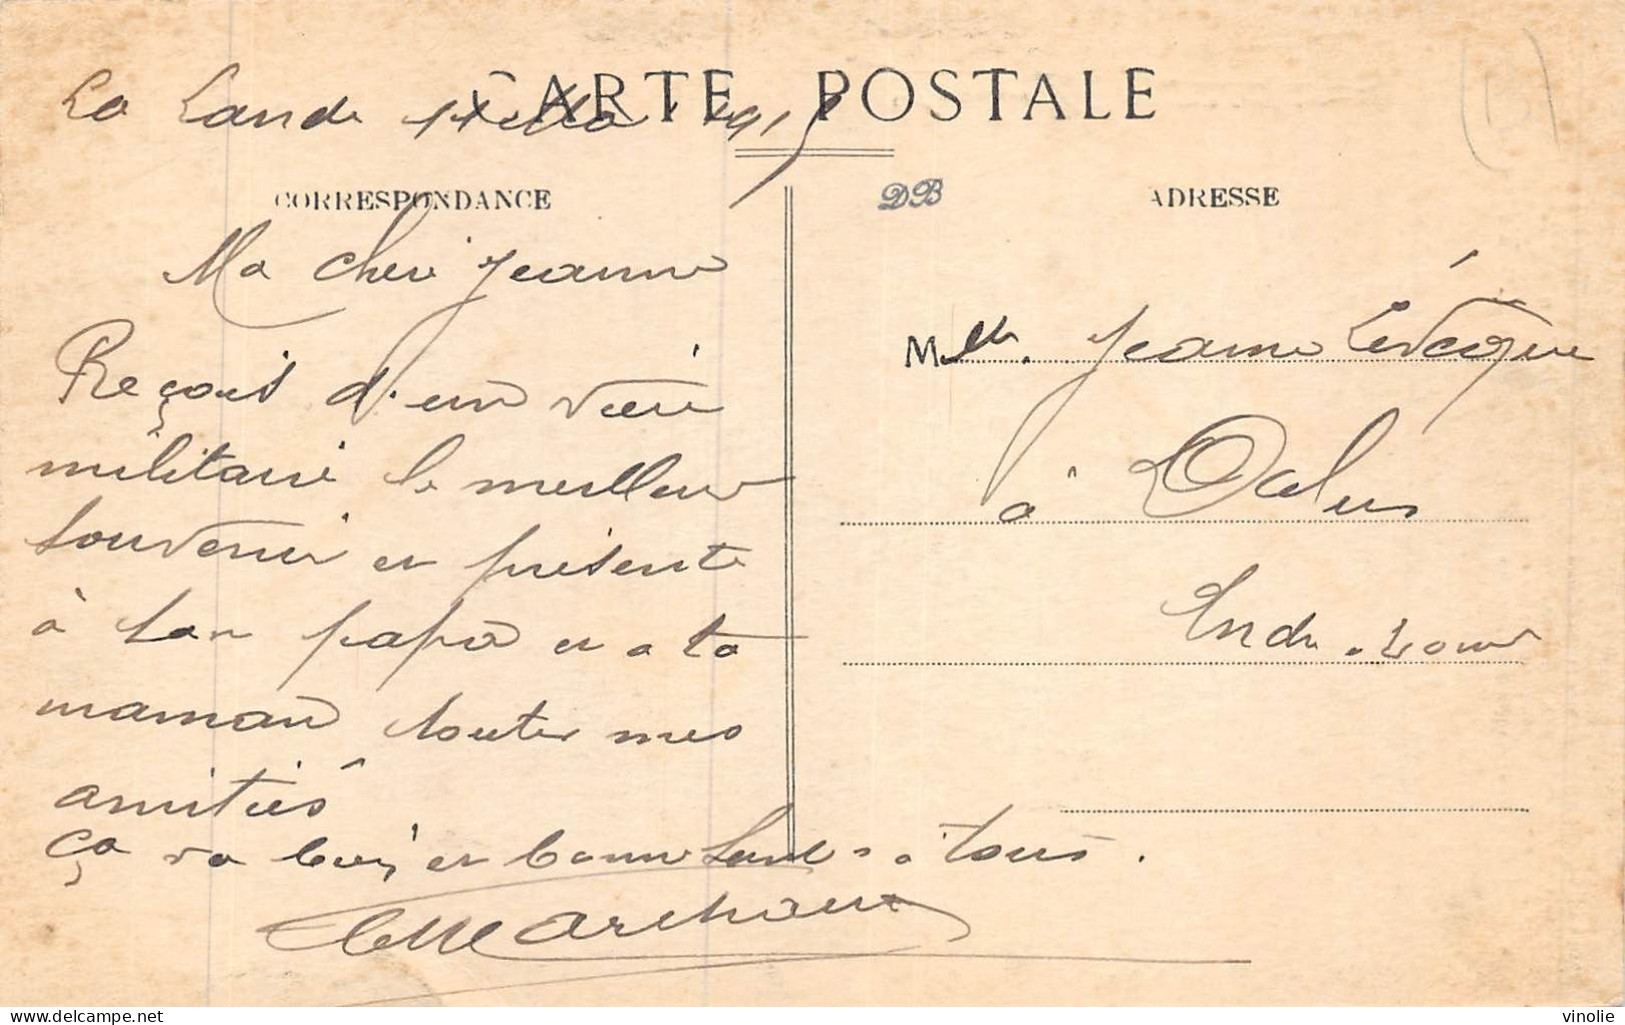 CARTE POSTALE
La Lande 1915
CORRESPONDANCE
DB
ADRESSE
Ma cher Jeanne
Reçois d'un vieu
militaire le meilleur
souvenir et présente
à ton papa et a ta
maman toutes mes
amitiés
ça va bien et bonne santé a tous.
Marchand
Melle Jeanne Levêque
à
Indre . Loire
delcampe.net
vinolie